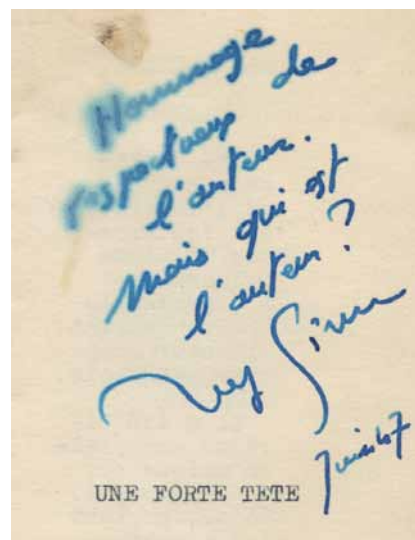 Hommage
respectueux de
l'auteur.
Mais qui est
l'auteur?
Juin 47
UNE FORTE TETE